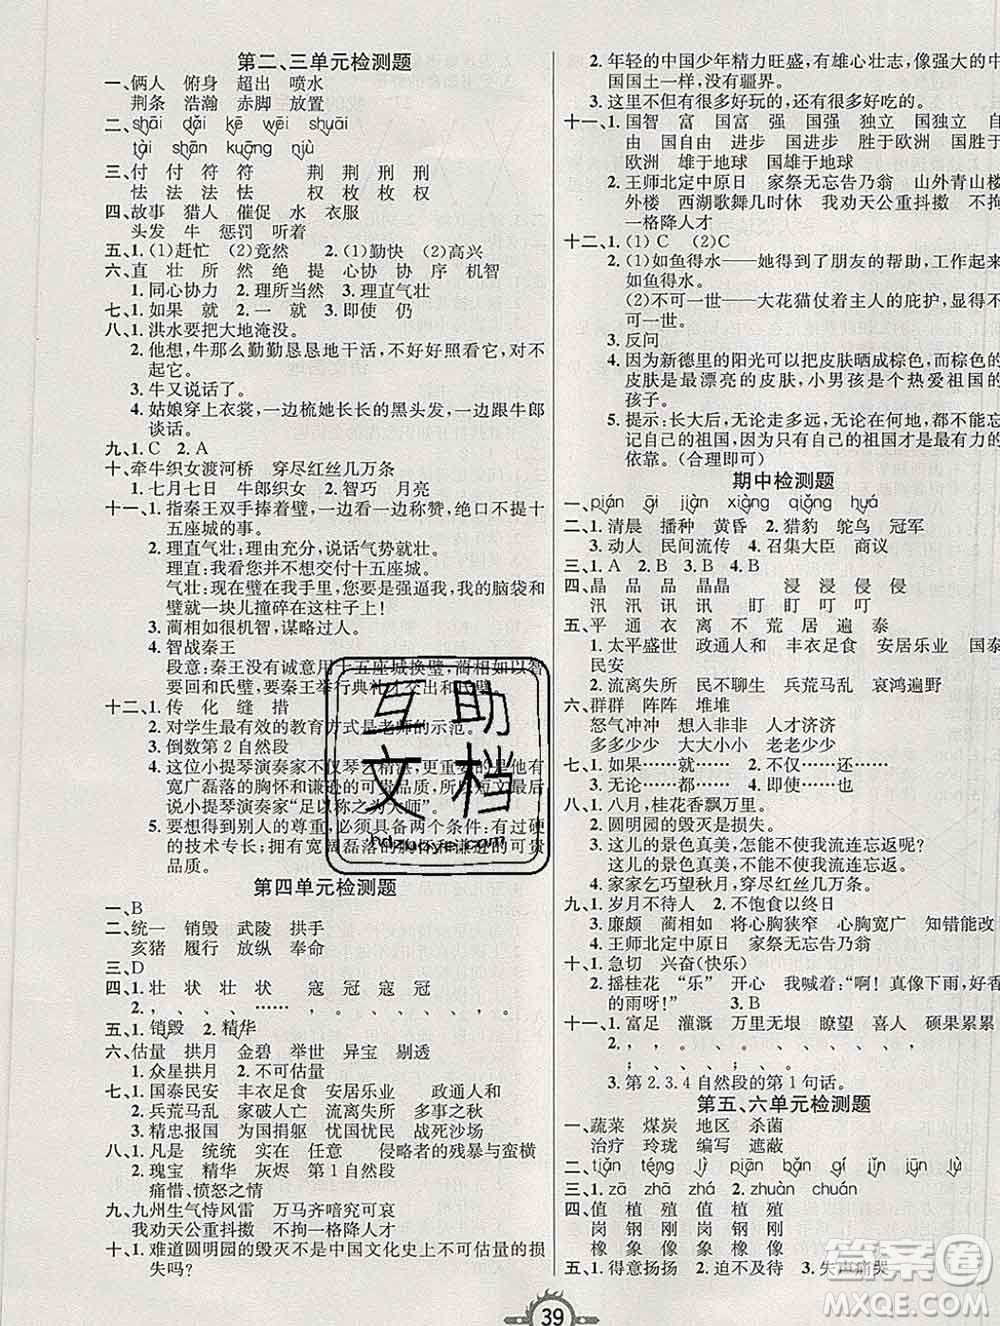 第二、三单元检测题
一、俩人 俯身 超出 喷水
荆条 浩瀚 赤脚 放置
二、shāi dǎi kē wēi shuāi
tài shān kuāng niù
三、付 付 符 符 荆 荆 刑 刑
怯 法 法 怯 权 枚 枚 权
四、故事 猎人 催促 水 衣服
头发 牛 惩罚 听着
五、1. (1)赶忙 (2)竟然 2. (1)勤快 (2)高兴
六、直 壮 所 然 绝 提 心协 协 序 机智
1. 同心协力 2. 理所当然 3. 理直气壮
七、1. 如果 就 2. 一 就 3. 即使 仍
八、1. 洪水要把大地淹没。
2. 他想,牛那么勤勤恳恳地干活,不好好照看它,对不
起它。
3. 牛又说话了。
4. 姑娘穿上衣裳,一边梳她长长的黑头发,一边跟牛郎
谈话。
九、1. C 2. A
十、牵牛织女渡河桥 穿尽红丝几万条
1. 七月七日 牛郎织女 2. 智巧 月亮
十一、1. 指秦王双手捧着璧,一边看一边称赞,绝口不提十
五座城的事。
2. 理直气壮:理由充分,说话气势就壮。
理直:我看您并不想交付十五座城。
气壮:现在璧在我手里,您要是强逼我,我的脑袋和
璧就一块儿撞碎在这柱子上!
3. 蔺相如很机智,谋略过人。
4. 智战秦王
段意:秦王没有诚意用十五座城换璧,蔺相如以智
要回和氏璧,要秦王举行典礼才交出和氏璧。
十二、1. 传 化 缝 措
2. 对学生最有效的教育方式是老师的示范。
3. 倒数第 2 自然段
4. 这位小提琴演奏家不仅琴艺精湛,更重要的是他有
宽广磊落的胸怀和谦逊的可贵品质,所以短文最后
说小提琴演奏家“足以称之为大师”。
5. 要想得到别人的尊重,必须具备两个条件:有过硬
的技术专长;拥有宽阔磊落的胸怀和谦逊的可贵品
质。
第四单元检测题
一、B
二、统一 销毁 武陵 拱手
亥猪 履行 放纵 奉命
三、D
四、1. 壮 状 状 壮 寇 冠 寇 冠
2. 、 、 、 …… , , , 。
五、1. 销毁 2. 精华
六、估量 拱月 金碧 举世 异宝 剔透
1. 众星拱月 2. 不可估量
七、1. 国泰民安 丰衣足食 安居乐业 政通人和
2. 兵荒马乱 家破人亡 流离失所 多事之秋
3. 精忠报国 为国捐躯 忧国忧民 战死沙场
八、1. 凡是 统统 实在 任意 侵略者的残暴与蛮横
2. 瑰宝 精华 灰烬 第 1 自然段
痛惜、愤怒之情
九、九州生气恃风雷 万马齐喑究可哀
我劝天公重抖擞 不拘一格降人才
十、1. 难道圆明园的毁灭不是中国文化史上不可估量的损
失吗?
2. 年轻的中国少年精力旺盛,有雄心壮志,像强大的中
国国土一样,没有疆界。
3. 这里不但有很多好玩的,还有很多好吃的。
十一、1. 国智 富 国富 强 国强 独立 国独立 自
由 国自由 进步 国进步 胜于欧洲 国胜于
欧洲 雄于地球 国雄于地球
2. 王师北定中原日 家祭无忘告乃翁 山外青山楼
外楼 西湖歌舞几时休 我劝天公重抖擞 不拘
一格降人才
十二、1. (1) C (2)C
2. (1)如鱼得水——她得到了朋友的帮助,工作起来
如鱼得水。
(2)不可一世——大花猫仗着主人的庇护,显得不
可一世。
3. 反问
4. 因为新德里的阳光可以把皮肤晒成棕色,而棕色的
皮肤是最漂亮的皮肤,小男孩是个热爱祖国的
孩子。
5. 提示:长大后,无论走多远,无论在何地,都不能忘
记自己的祖国,因为自己的祖国才是最有力的
依靠。(合理即可)
期中检测题
一、pián āi jiàn xiàng qiǎng huá
二、1. 清晨 播种 黄昏 2. 猎豹 鸵鸟 冠军
3. 动人 民间流传 4. 召集大臣 商议
三、1. A 2. B 3. B 4. B
四、晶 品 品 晶晶 浸 浸 侵 侵
汛 汛 讯 讯 盯 盯 叮 叮
五、平 通 衣 离 不 荒 居 遍 泰
1. 太平盛世 政通人和 丰衣足食 安居乐业 国泰
民安
2. 流离失所 民不聊生 兵荒马乱 哀鸿遍野
六、群群 阵阵 堆堆
怒气冲冲 想入非非 人才济济
多多少少 大大小小 老老少少
七、1. 如果……就…… 2. 不仅……还……
3. 无论……都…… 4. 即使……也……
八、1. 八月,桂花香飘万里。
2. 圆明园的毁灭是损失。
3. 这儿的景色真美,怎能不使我流连忘返呢?
这儿的景色真美,不能不使我流连忘返。
4. 家家乞巧望秋月,穿尽红丝几万条。
九、1. 岁月不待人 2. 不饱食以终日
3. 廉颇 蔺相如 将心胸狭窄 心胸宽广 知错能改
4. 王师北定中原日 家祭无忘告乃翁
十、1. 急切 兴奋(快乐)
2. 摇桂花 “乐” 开心 我喊着:“啊!真像下雨,好香
的雨呀!” 3. B
十一、1. 富足 灌溉 万里无垠 瞭望 喜人 硕果累累
2. , , 。 : , 、 、 、
, ; , ; , 。
3. 第 2、3、4 自然段的第 1 句话。
第五、六单元检测题
一、蔬菜 煤炭 地区 杀菌
治疗 玲珑 编写 遮蔽
二、tiǎn téng lì piān bǎn gí jǐn jūn lù
三、1. zā zhā zhá 2. zhuàn chuán
四、值 植 殖 值 植 殖
岗 钢 刚 岗 钢 刚
橡 象 像 橡 象 像
五、1. 得意扬扬 2. 迫不及待 3. 失声痛哭
39
互助
文档
hdzuoye.com
答案圈
MXQE.COM